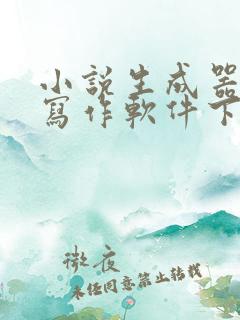 小說生成器
寫作軟件下
微夜
未经同意禁止转载